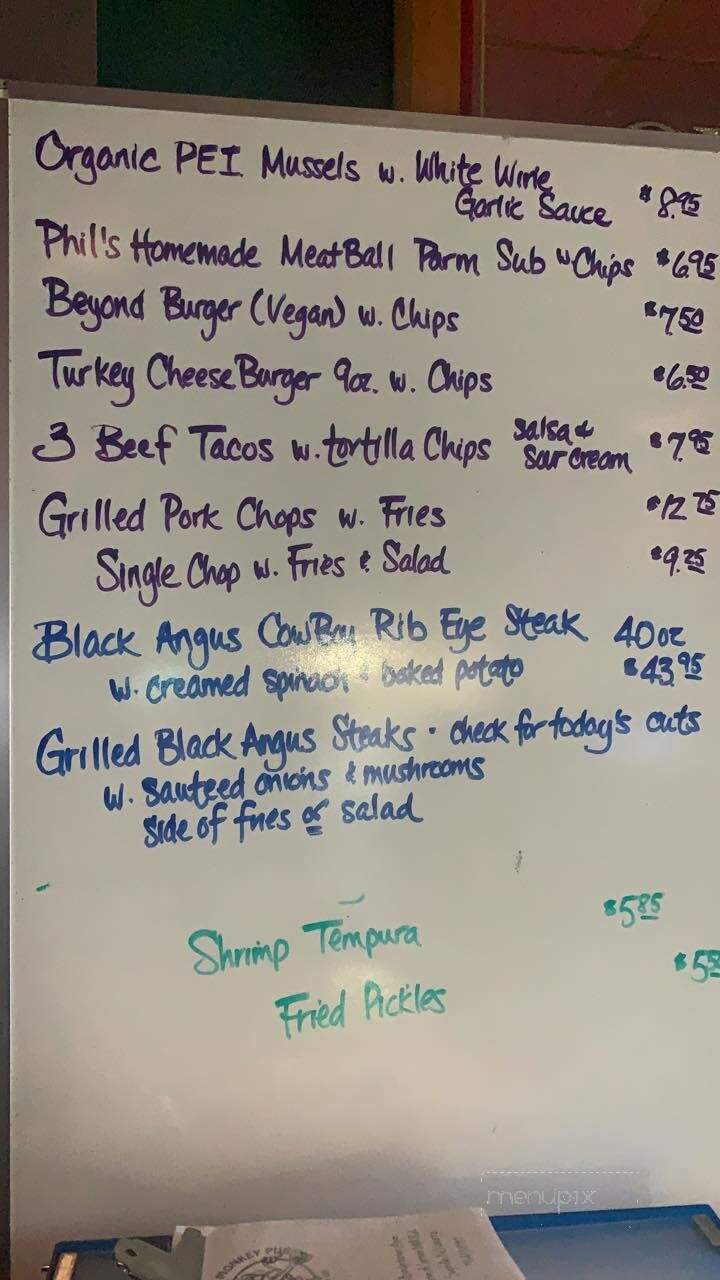 Organic PEI Mussels w. White Wine
Garlic Sauce $8.95
Phil's Homemade MeatBall Parm Sub w Chips $6.95
Beyond Burger (Vegan) w. Chips $7.50
Turkey CheeseBurger 9oz. w. Chips $6.50
3 Beef Tacos w. tortilla Chips salsa & sour cream $7.95
Grilled Pork Chops w. Fries $12.75
Single Chop w. Fries & Salad $9.25
Black Angus CowBoy Rib Eye Steak 40oz
w. creamed spinach & baked potato $43.95
Grilled Black Angus Steaks · check for today's cuts
w. sauteed onions & mushrooms
side of fries or salad
$5.85
Shrimp Tempura
Fried Pickles
menupix